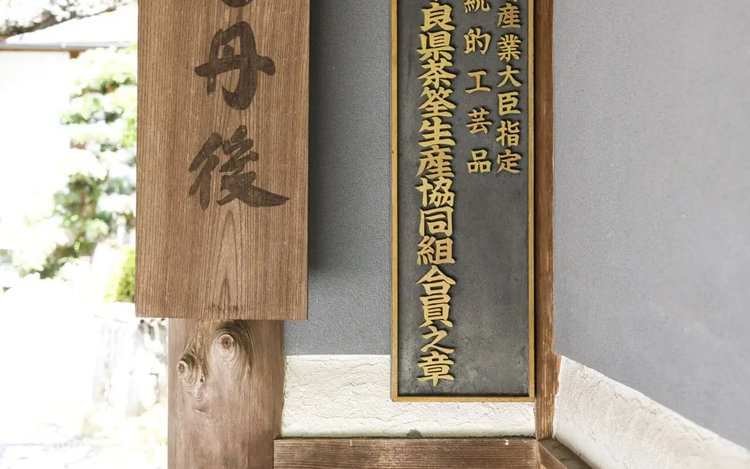 産業大臣指定
統的工芸品
良県茶筌生産協同組合員之章
丹後